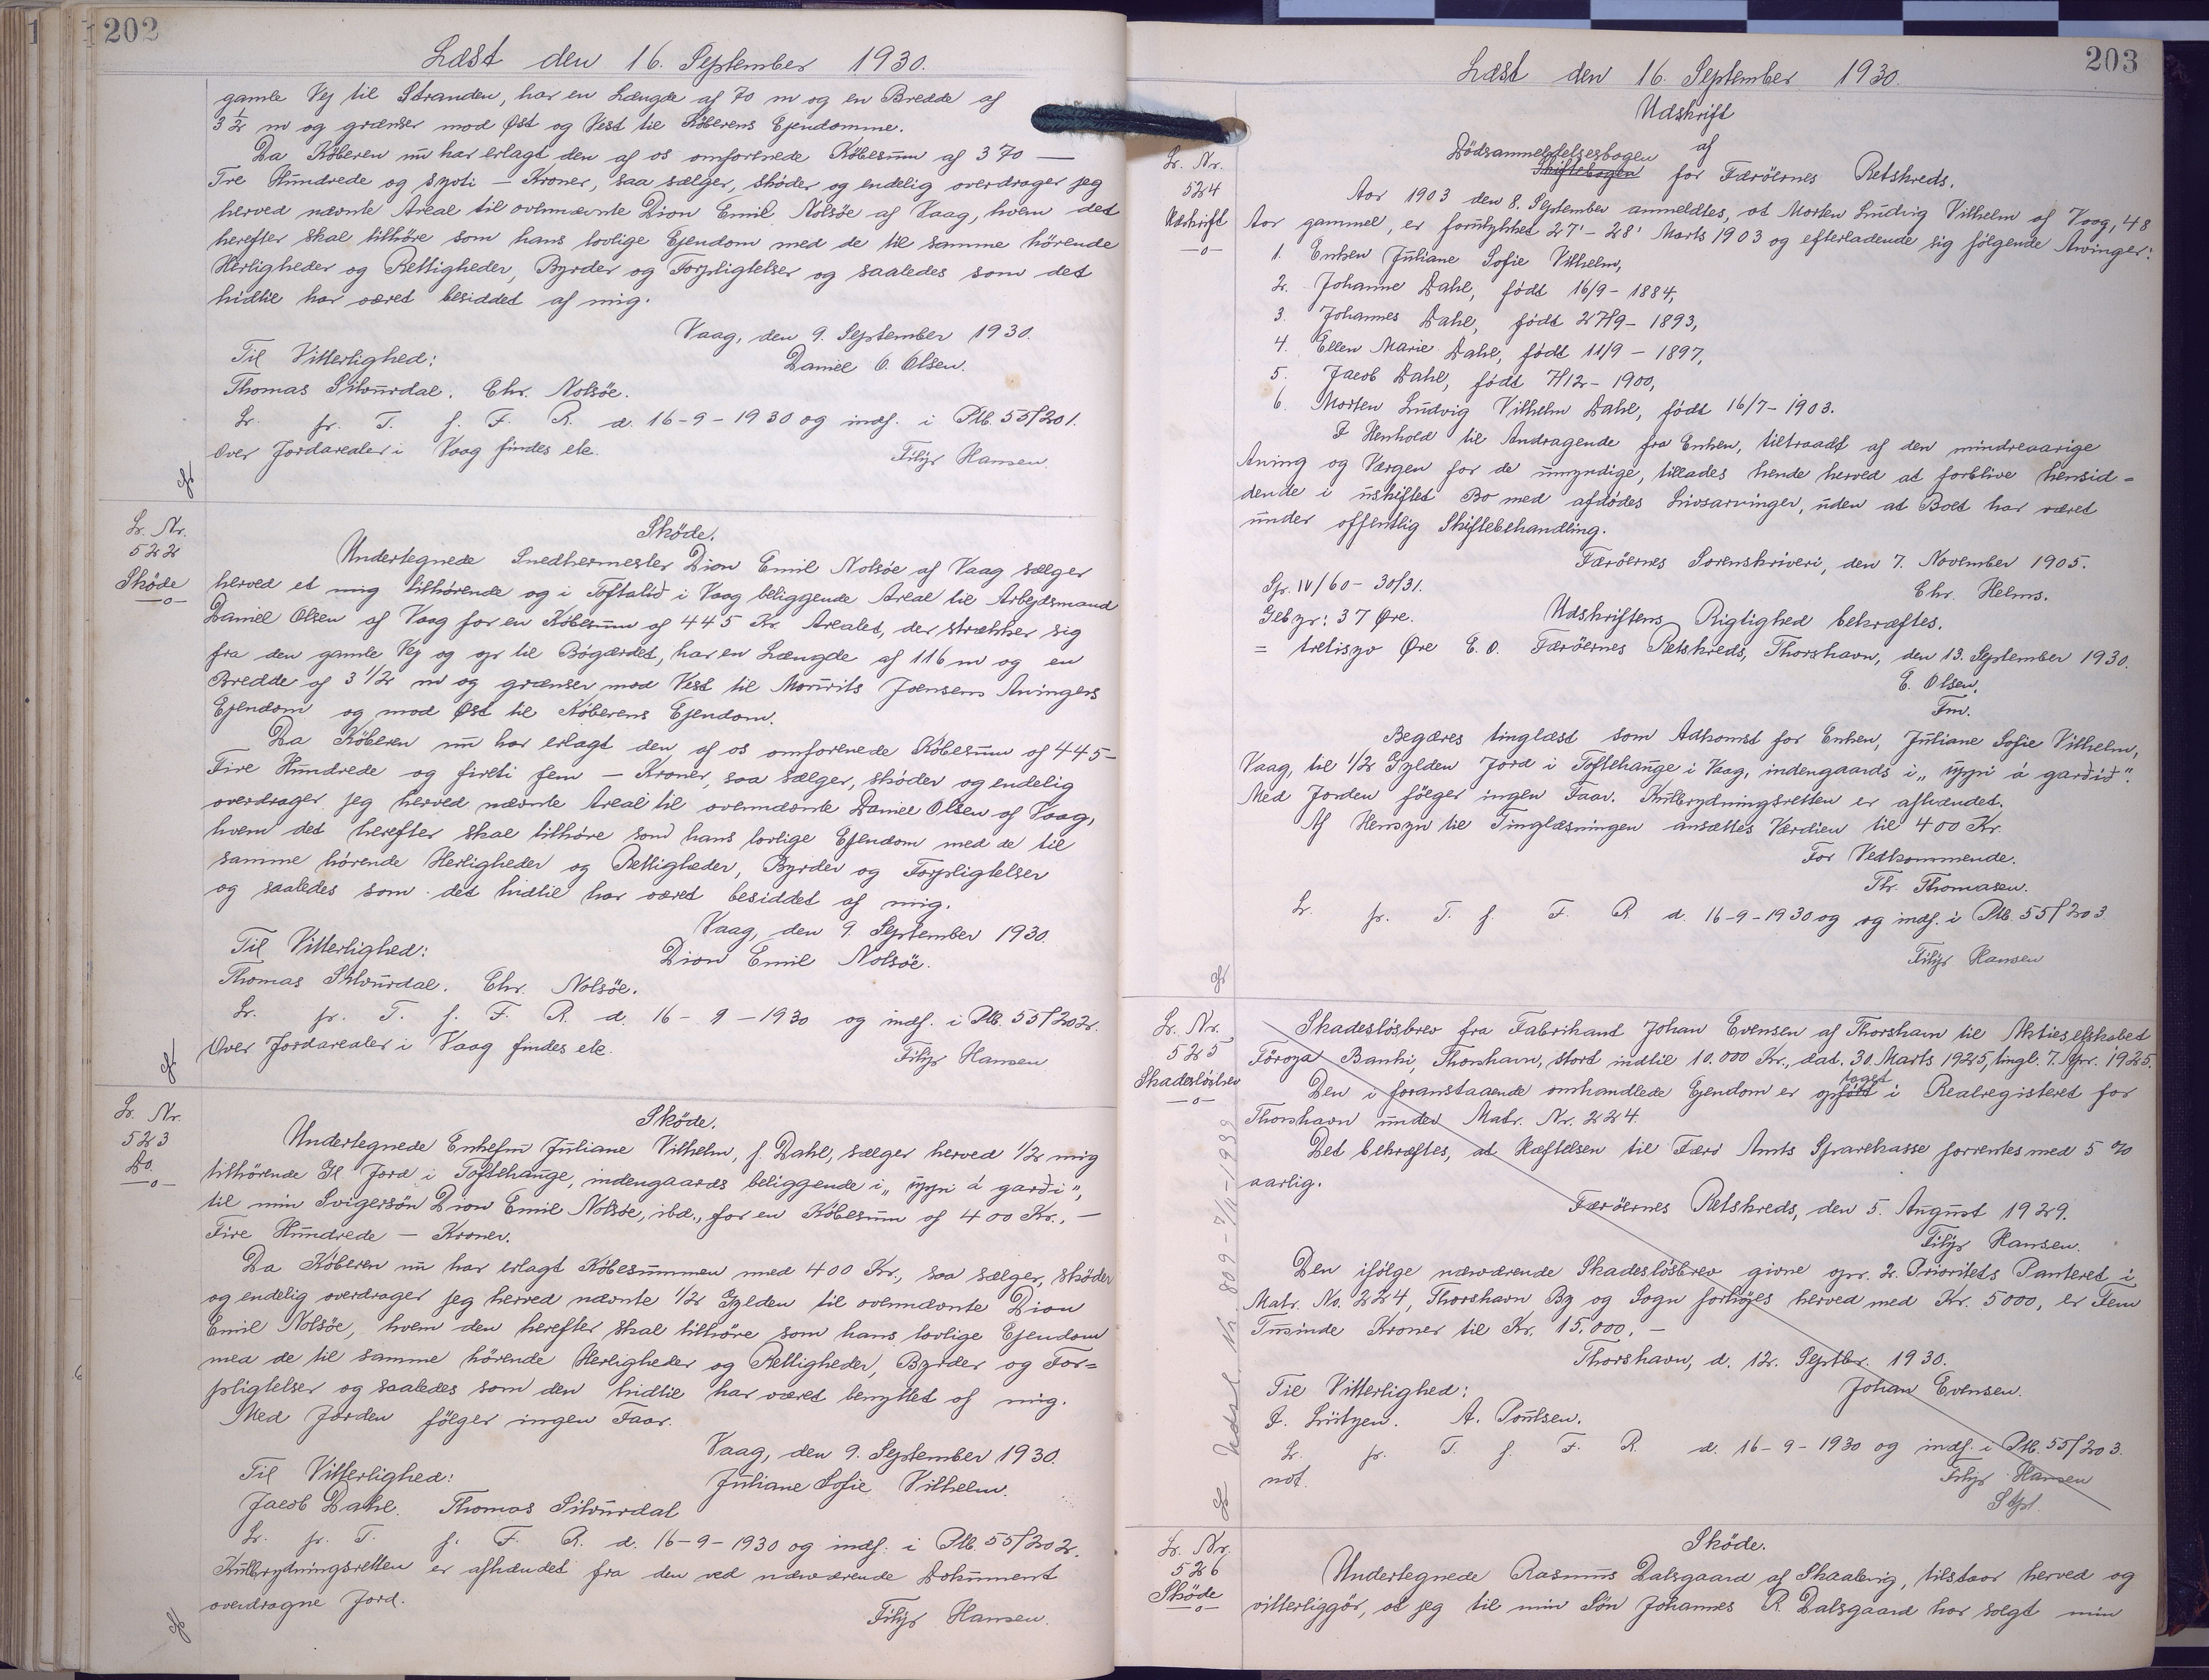 202
Læst den 16. September 1930.
gamle Vej til Stranden, har en Længde af 70 m og en Bredde af
3 1/2 m og grænser mod Øst og Vest til Köberens Ejendomme.
Da Köberen nu har erlagt den af os omforenede Köbesum af 370 —
Tre Hundrede og syvti — Kroner, saa sælger, sköder og endelig overdrager jeg
herved nævnte Areal til ovennævnte Dion Emil Nolsöe af Vaag, hvem det
herefter skal tilhöre som hans lovlige Ejendom med de til samme hörende
Herligheder og Rettigheder, Byrder og Forpligtelser og saaledes som det
hidtil har været besiddet af mig.
Vaag, den 9. September 1930.
Til Vitterlighed: Daniel O. Olsen.
Thomas Stourdal. Chr. Nolsöe.
Lr. pr. T. f. F. R. d. 16-9-1930 og indf. i Ptb. 55/201.
Over Jordarealer i Vaag findes etc.
Filip Hansen.
Lr. Nr.
522
Sköde
—o—
Sköde.
Undertegnede Snedkermester Dion Emil Nolsöe af Vaag sælger
herved et mig tilhörende og i Toftalið i Vaag beliggende Areal til Arbejdsmand
Daniel Olsen af Vaag for en Köbesum af 445 Kr. Arealet, der strækker sig
fra den gamle Vej og op til Bögærdet, har en Længde af 116 m og en
Bredde af 3 1/2 m og grænser mod Vest til Mourits Joensens Arvingers
Ejendom og mod Øst til Köberens Ejendom.
Da Köberen nu har erlagt den af os omforenede Köbesum af 445 —
Fire Hundrede og firti fem — Kroner, saa sælger, sköder og endelig
overdrager jeg herved nævnte Areal til ovennævnte Daniel Olsen af Vaag,
hvem det herefter skal tilhöre som hans lovlige Ejendom med de til
samme hörende Herligheder og Rettigheder, Byrder og Forpligtelser
og saaledes som det hidtil har været besiddet af mig.
Vaag, den 9. September 1930.
Til Vitterlighed: Dion Emil Nolsöe.
Thomas Stourdal. Chr. Nolsöe.
Lr. pr. T. f. F. R. d. 16-9-1930 og indf. i Ptb. 55/202.
Over Jordarealer i Vaag findes etc.
Filip Hansen
Lr. Nr.
523
Do.
—o—
Sköde.
Undertegnede Enkefru Juliane Vilhelm, f. Dahl, sælger herved 1/2 mig
tilhörende Gl Jord i Toftehauge, indengaards beliggende i „uppi á garði",
til min Svigersön Dion Emil Nolsöe, ibd., for en Köbesum af 400 Kr., —
Fire Hundrede — Kroner.
Da Köberen nu har erlagt Köbesummen med 400 Kr., saa sælger, sköder
og endelig overdrager jeg herved nævnte 1/2 Gylden til ovennævnte Dion
Emil Nolsöe, hvem den herefter skal tilhöre som hans lovlige Ejendom
med de til samme hörende Herligheder og Rettigheder, Byrder og For=
pligtelser og saaledes som den hidtil har været benyttet af mig.
Med Jorden fölger ingen Faar.
Vaag, den 9. September 1930.
Til Vitterlighed: Juliane Sofie Vilhelm.
Jacob Dahl. Thomas Stourdal
Lr. pr. T. f. F. R. d. 16-9-1930 og indf. i Ptb. 55/202.
Kulbrydningsretten er afhændet fra den ved nærværende Dokument
overdragne Jord.
Filip Hansen.
203
Læst den 16. September 1930.
Lr. Nr.
524
Udskrift
—o—
Udskrift
af
Dödsanmeldelsesbogen
Skiftebogen for Færöernes Retskreds.
Aar 1903 den 8. September anmeldtes, at Morten Ludvig Vilhelm af Vaag, 48
Aar gammel, er forulykket 27'-28' Marts 1903 og efterladende sig fölgende Arvinger:
1. Enken Juliane Sofie Vilhelm,
2. Johanne Dahl, födt 16/9 - 1884,
3. Johannes Dahl, födt 27/9 - 1893,
4. Ellen Marie Dahl, födt 11/9 - 1897,
5. Jacob Dahl, födt 7/12 - 1900,
6. Morten Ludvig Vilhelm Dahl, födt 16/7 - 1903.
I Henhold til Andragende fra Enken, tiltraadt af den mindreaarige
Arving og Værgen for de umyndige, tillades hende herved at forblive hensid=
dende i uskiftet Bo med afdödes Livsarvinger, uden at Boet har været
under offentlig Skiftebehandling.
Færöernes Sorenskriveri, den 7. November 1905.
Chr. Helms.
Spr. IV/60 - 30/31.
Gebyr: 37 Øre. Udskriftens Rigtighed bekræftes.
= tretisyv Øre E. O. Færöernes Retskreds, Thorshavn, den 13. September 1930.
E. Olsen,
Fm.
Begæres tinglæst som Adkomst for Enken, Juliane Sofie Vilhelm,
Vaag, til 1/2 Gylden Jord i Toftehauge i Vaag, indengaards i „uppi á garðið".
Med Jorden fölger ingen Faar. Kulbrydningsretten er afhændet.
Af Hensyn til Tinglæsningen ansættes Værdien til 400 Kr.
For Vedkommende.
Th. Thomasen.
Lr. pr. T. f. F. R. d. 16-9-1930 og og indf. i Ptb. 55/203.
Filip Hansen
Lr. Nr.
525
Skadeslösbrev
—o—
Skadeslösbrev fra Fabrikant Johan Evensen af Thorshavn til Aktieselskabet
Föroya Banki, Thorshavn, stort indtil 10.000 Kr., dat. 30. Marts 1925, tingl. 7. Apr. 1925.
taget
Den i foranstaaende omhandlede Ejendom er opfört i Realregisteret for
Thorshavn under Matr. Nr. 224.
Det bekræftes, at Hæftelsen til Færö Amts Sparekasse forrentes med 5 %
aarlig.
Færöernes Retskreds, den 5. August 1929.
Filip Hansen.
Den ifölge nærværende Skadeslösbrev givne opr. 2. Prioritets Panteret i
Matr. No. 224, Thorshavn By og Sogn forhöjes herved med Kr. 5000, er Fem
Tusinde Kroner til Kr. 15.000. —
Thorshavn, d. 12. Septbr. 1930.
Til Vitterlighed: Johan Evensen.
A. Poulsen.
Lr. pr. T. f. F. R. d. 16-9-1930 og indf. i Ptb. 55/203.
not. Filip Hansen
Lr. Nr.
526
Sköde
—o—
Sköde.
Undertegnede Rasmus Dalsgaard af Skaalevig, tilstaar herved og
vitterliggör, at jeg til min Sön Johannes R. Dalsgaard har solgt min